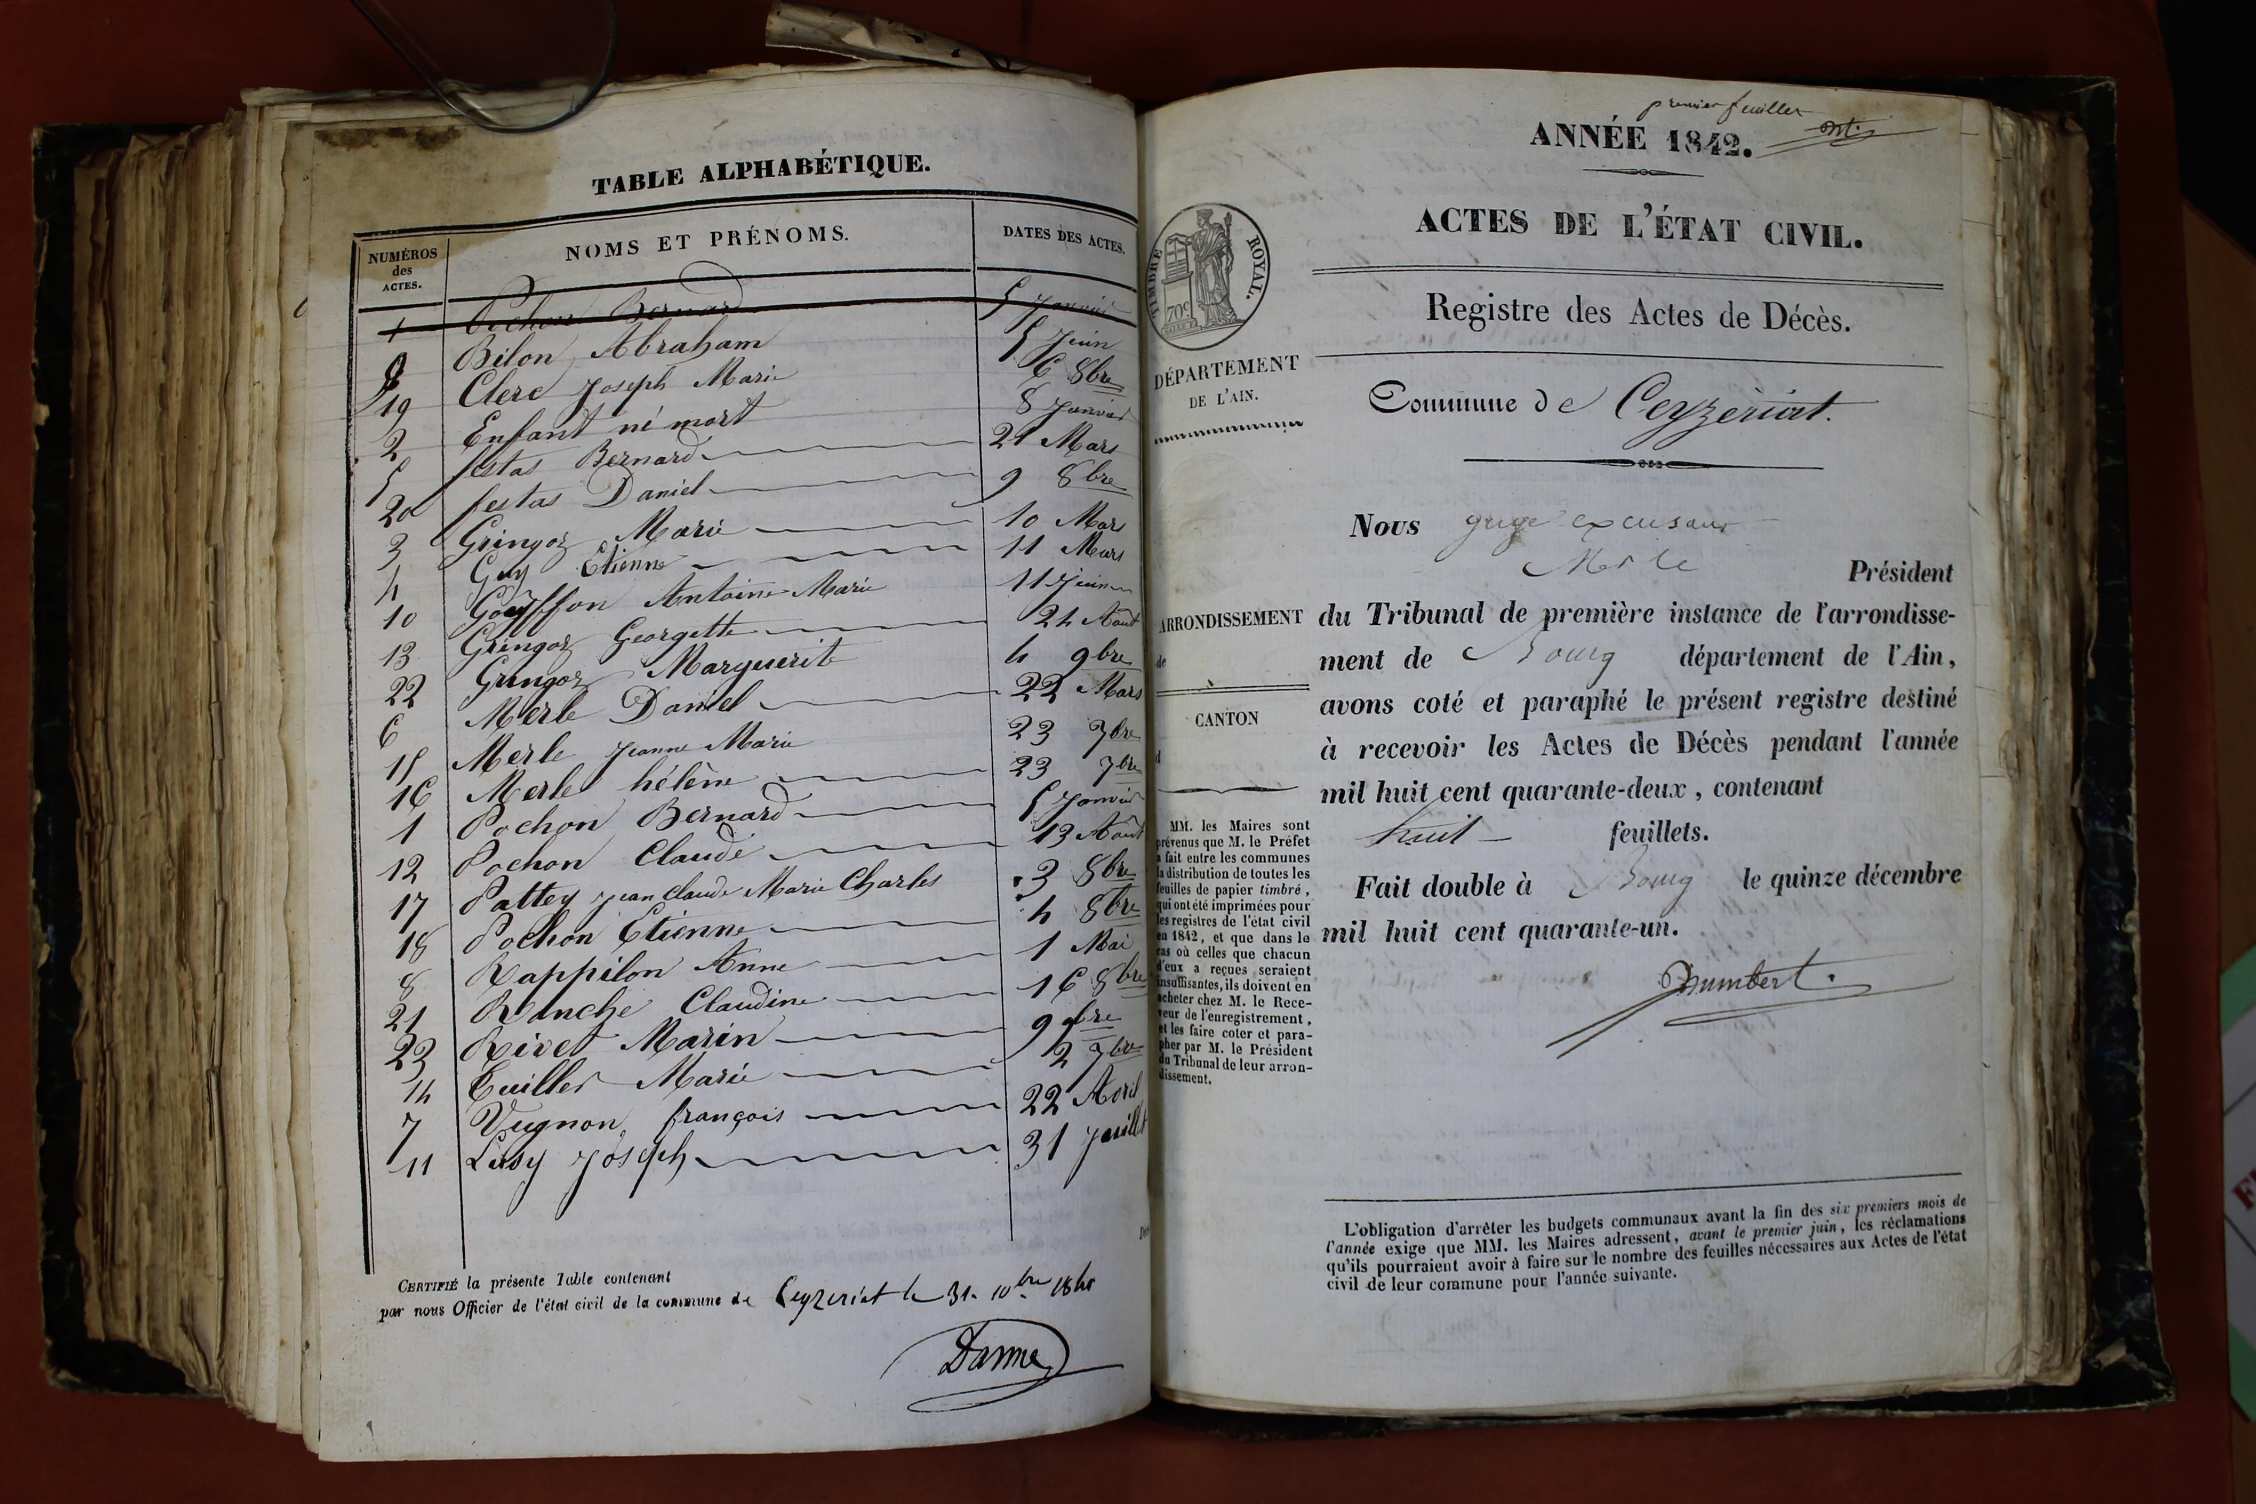 TABLE ALPHABÉTIQUE.
NUMÉROS des ACTES. NOMS ET PRÉNOMS. DATES DES ACTES.
1 Pochon Bernard 5 Janvier
9 Bilon Abraham 5 Juin
19 Clerc Joseph Marie 6 8bre
2 Enfant né mort 8 Janvier
5 festas Bernard 21 Mars
20 festas Daniel 9 8bre
3 Gringoz Marie 10 Mars
4 Guy Etienne 11 Mars
10 Gouffon Antoine Marie 11 Juin
13 Gringoz Georgette 24 Août
22 Gringoz Marguerite 4 9bre
6 Merle Daniel 22 Mars
15 Merle Jeanne Marie 23 7bre
16 Merle hélène 23 7bre
1 Pochon Bernard 5 Janvier
12 Pochon Claude 13 Août
17 Pattey Jean Claude Marie Charles 3 8bre
18 Pochon Etienne 4 8bre
8 Rappilon Anne 1 Mai
21 Ranche Claudine 16 8bre
23 Rivet Marin 9 9bre
14 Tuiller Marie 2 7bre
7 Vugnon françois 22 Avril
11 Lusy Joseph 31 Juillet
CERTIFIÉ la présente Table contenant
par nous Officier de l'état civil de la commune de Ceyzeriat le 31 10bre 1841
Darme
premier feuillet
ANNÉE 1842.
ACTES DE L'ÉTAT CIVIL.
TIMBRE ROYAL.
70c
Registre des Actes de Décès.
DÉPARTEMENT
DE L'AIN.
Commune de Ceyzériat.
ARRONDISSEMENT
de
CANTON
d
MM. les Maires sont
prévenus que M. le Préfet
a fait entre les communes
la distribution de toutes les
feuilles de papier timbré,
qui ont été imprimées pour
les registres de l'état civil
en 1842, et que dans le
cas où celles que chacun
d'eux a reçues seraient
insuffisantes, ils doivent en
acheter chez M. le Rece-
veur de l'enregistrement,
et les faire coter et para-
pher par M. le Président
du Tribunal de leur arron-
dissement.
Nous juge excusant
Mr le Président
du Tribunal de première instance de l'arrondisse-
ment de Bourg département de l'Ain,
avons coté et paraphé le présent registre destiné
à recevoir les Actes de Décès pendant l'année
mil huit cent quarante-deux, contenant
huit feuillets.
Fait double à Bourg le quinze décembre
mil huit cent quarante-un.
Humbert.
L'obligation d'arrêter les budgets communaux avant la fin des six premiers mois de
l'année exige que MM. les Maires adressent, avant le premier juin, les réclamations
qu'ils pourraient avoir à faire sur le nombre des feuilles nécessaires aux Actes de l'état
civil de leur commune pour l'année suivante.